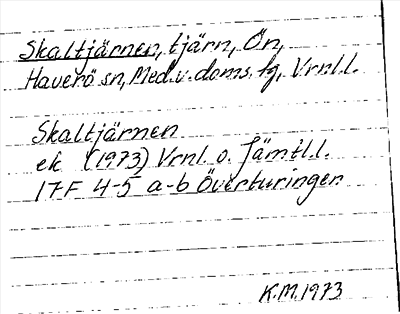 Skaltjärnen, tjärn, Ön,
Haverö sn, Med. v. doms. tg, Vrnl. l.
Skaltjärnen
ek (1973) Vrnl. o. Jämtl. l.
17F 4-5 a-b Överturingen
K.M. 1973